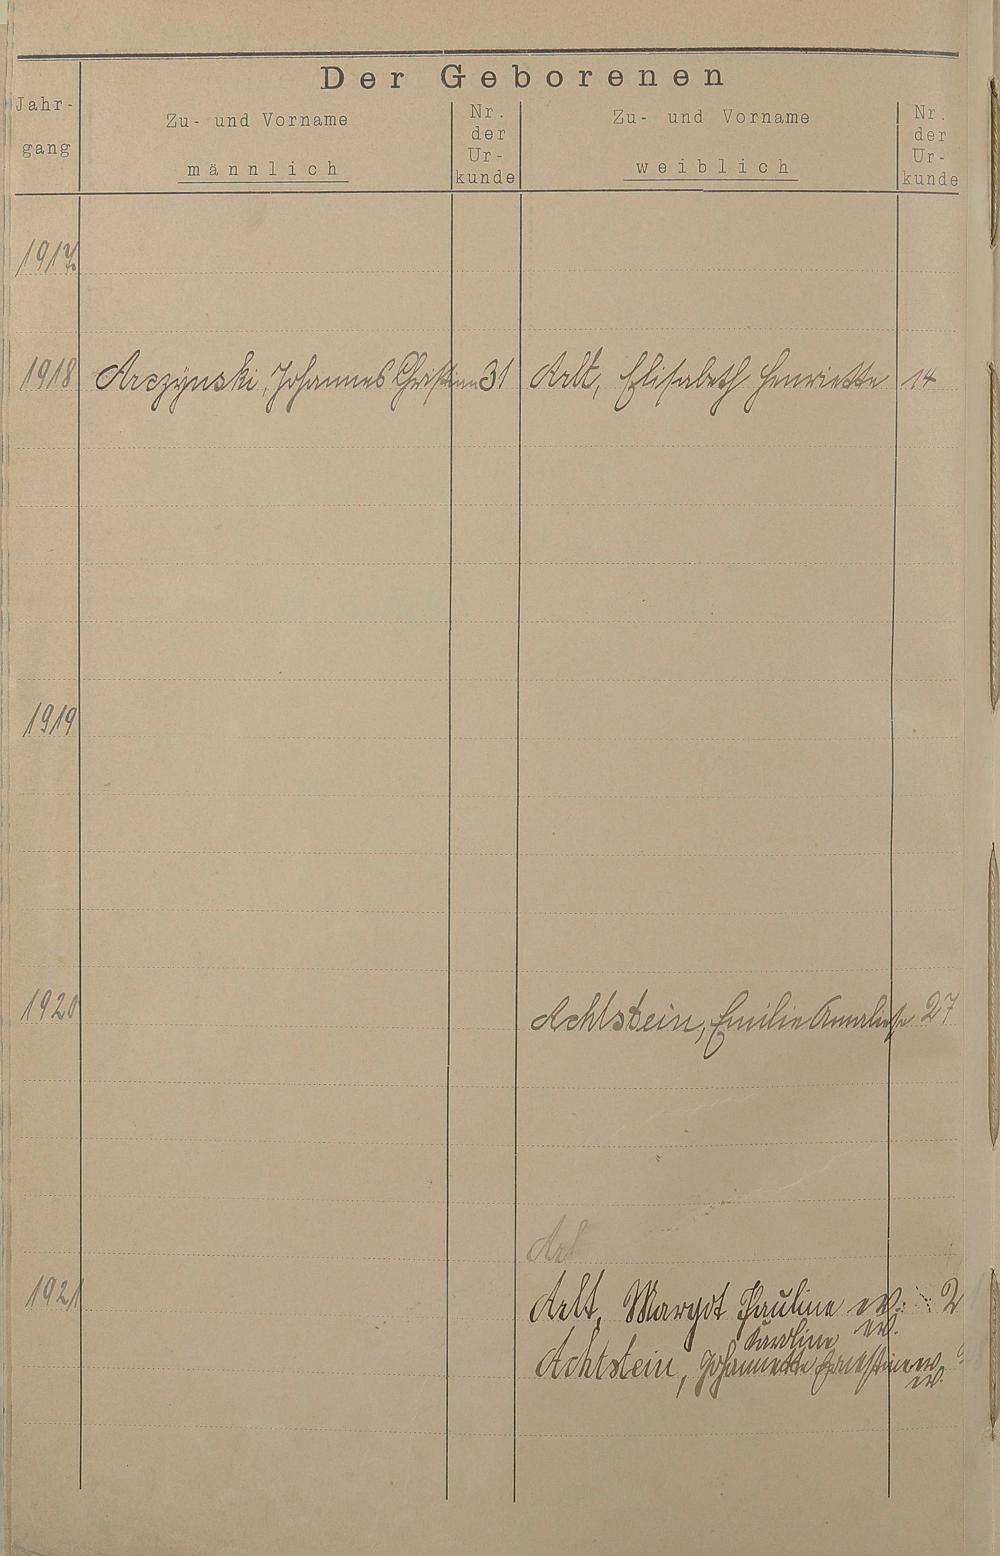 Der Geborenen
Jahr-
gang
Zu- und Vorname
männlich
Nr.
der
Ur-
kunde
Zu- und Vorname
weiblich
Nr.
der
Ur-
kunde
1917
1918 Arczynski, Johannes Christian 31 Arlt, Elisabeth Henriette 14
1919
1920 Achtstein, Emilie Anneliese 27
Arl
1921 Arlt, Margot Pauline ev. 2
Karoline ev.
Achtstein, Johannette Ernestine ev.
ev.